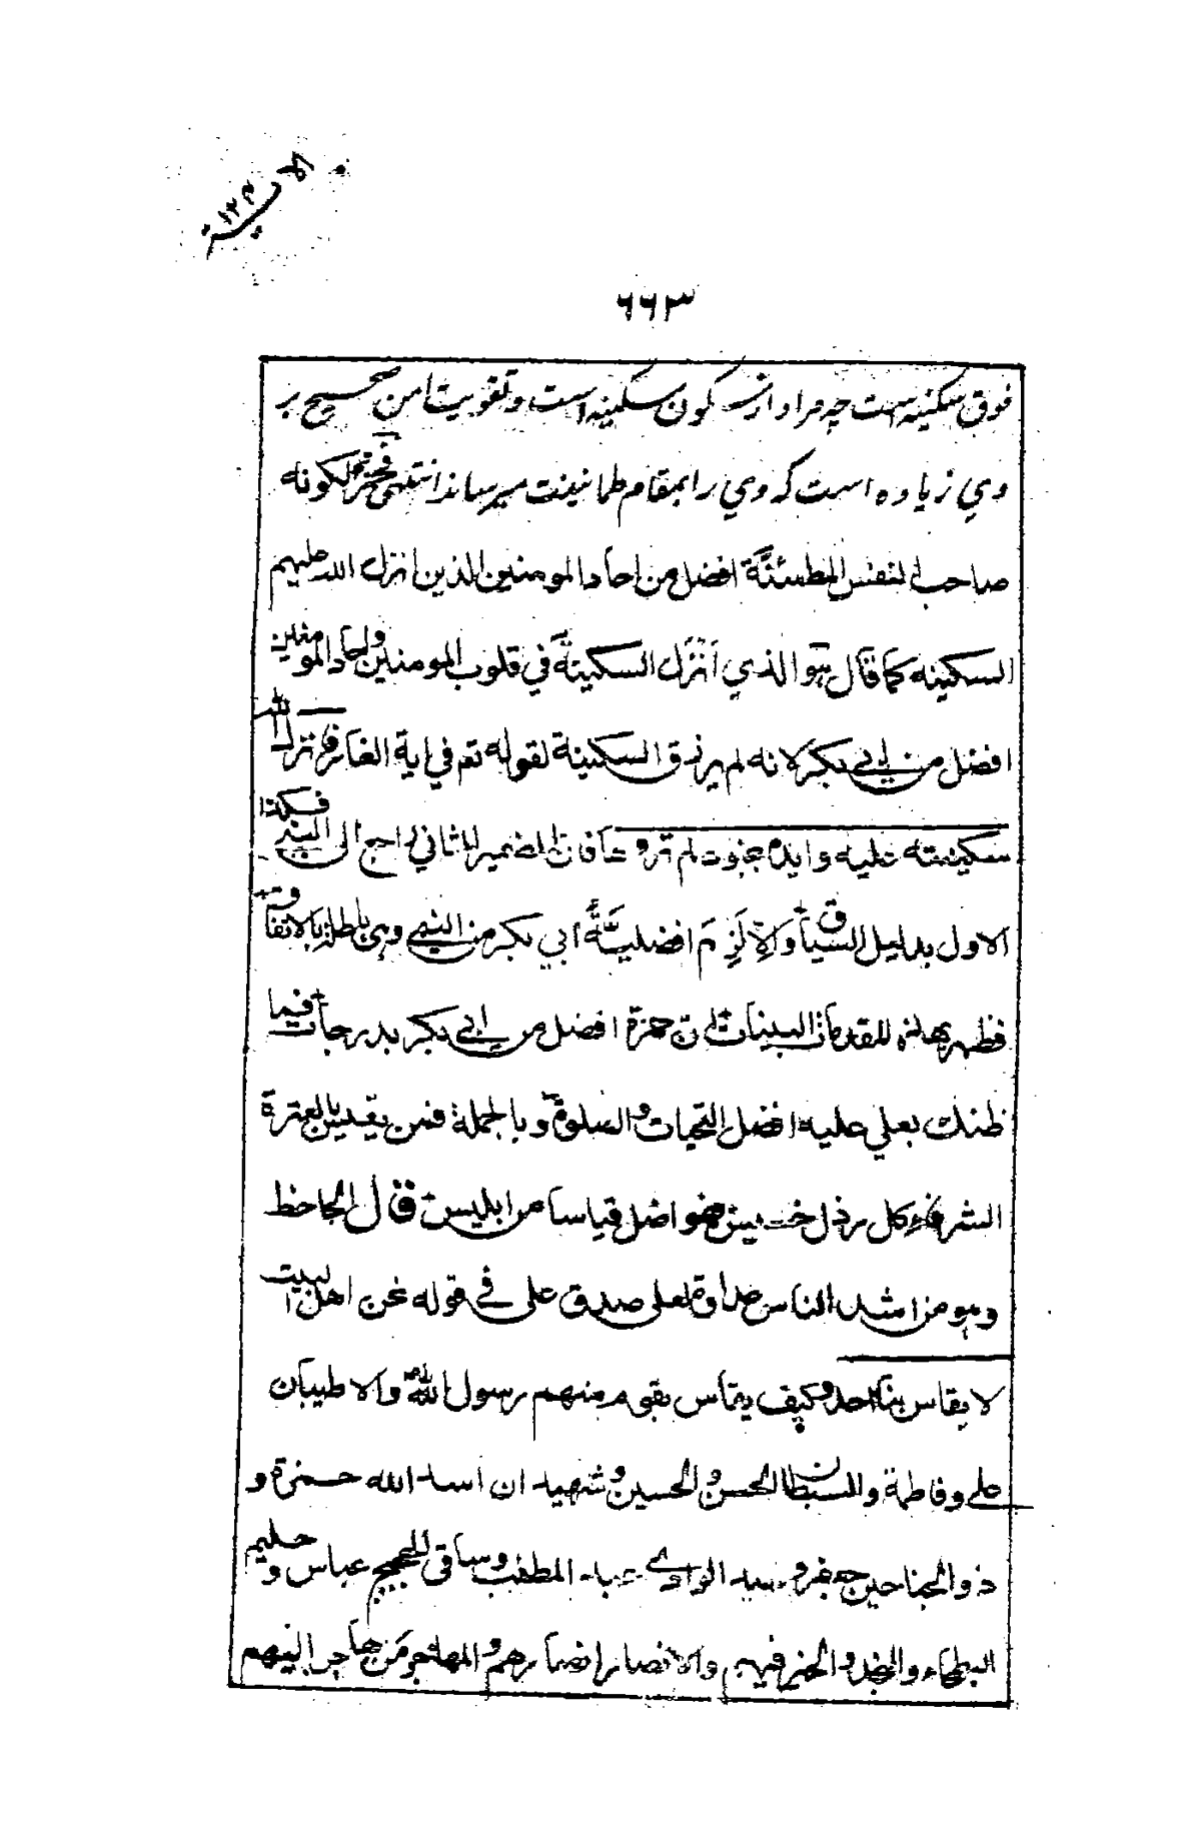 الآية ١٢
٦٦٣
فوق سكينه است چه مراد از سكون سكينه است و تقويت امن صحيح بر
وي زياده است كه وي را بمقام طمانينت ميرساند انتهى فحمزة لكونه
صاحب النفس المطمئنّة افضل من احاد المومنين الذين انزل الله عليهم
السكينه كما قال هو الذي اَنْزَل السكينة في قلوب المومنين واحاد المومنين
افضل من ابي بكر لانه لم يرزق السكينة لقوله تعم في اية الغار فانزل الله
سكينته عليه وايده بجنود لم تروها فان الضمير الثاني راجع الى النبي فكذا
الاول بدليل السياق والا لَزِمَ افضليّة ابي بكر من النبي وهي باطلة بالاتفاق
فظهر بهذه المقدمات البينات ان حمزة افضل من ابي بكر بدرجات فما
ظنك بعلي عليه افضل التحيات والصلوة وبالجملة فمن يقيس بالعترة
الشرفاء كل رذل خسيس فهو اضل قياسا من ابليس قال الجاحظ
وهو من اشد الناس عداوة لعلي صدق علي في قوله نحن اهل البيت
لا يقاس بنا احد وكيف يقاس بقوم منهم رسول الله ص والاطيبان
علي وفاطمة والسبطان الحسن والحسين وشهيدان اسد الله حمزة و
ذو الجناحين جعفر وسيد الوادي عبد المطلب وساقي الحجيج عباس وحليم
البطحاء والنجدة والخير فيهم والانصار انصارهم والمهاجر من هاجر اليهم